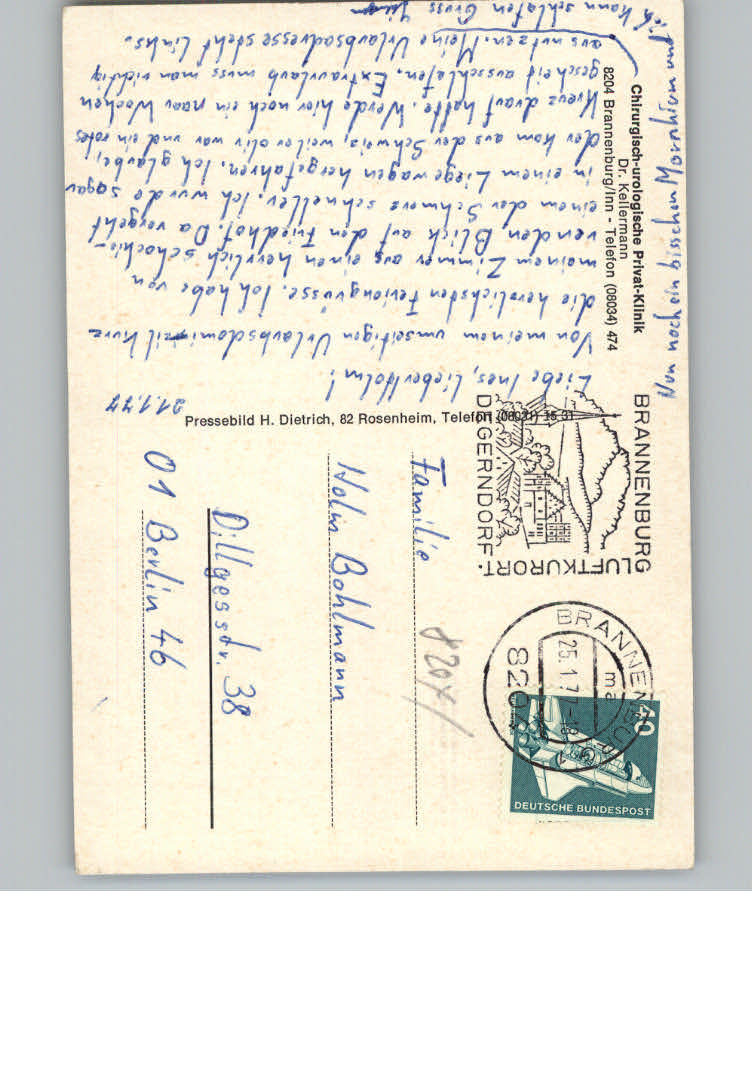 Chirurgisch-urologische Privat-Klinik
Dr. Kellermann
8204 Brannenburg/Inn - Telefon (08034) 474
21.1.77
Liebe Ines, lieber Holm!
Von meinem umseitigen Urlaubsdomizil kurz
die herzlichsten Feriengrüsse. Ich habe von
meinem Zimmer aus einen herrlich schockie-
renden Blick auf den Friedhof. Da vergeht
einem der Schmerz schneller. Ich wurde sogar
in einem Liegewagen hergefahren. Ich glaube,
der kam aus der Schweiz, weil er oliv war und ein rotes
Kreuz drauf hatte. Werde hier noch ein paar Wochen
gescheit ausschlafen. Extraurlaub muss man richtig
aus nutzen. Meine Urlaubsadresse steht links.
Nun noch ein bisschen Morphium und
ich kann schlafen Gruss
Pressebild H. Dietrich, 82 Rosenheim, Telefon (08031) 15 31
BRANNENBURG
DEGERNDORF.
LUFTKURORT.
BRANNENBURG
25.1.77-18
8204
ma
40
DEUTSCHE BUNDESPOST
Familie
Holm Bohlmann
Dillgesstr. 38
01 Berlin 46